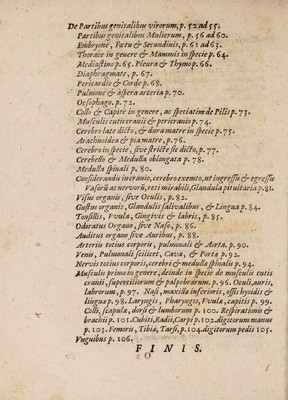 De Partibus genitalibus virorum, p. 52 ad 55.
Partibus genitalibus Mulierum, p. 56 ad 60.
Embryone, Fœtu & Secundinis, p. 61 ad 63.
Thorace in genere & Mammis in specie p. 64.
Mediastino p. 65. Pleura & Thymo p. 66.
Diaphragmate, p. 67.
Pericardio & Corde p. 68.
Pulmone & aspera arteria p. 70.
Oesophago. p. 72.
Collo & Capite in genere, ac speciatim de Pilis p. 73.
Musculis cutis cranii & pericranio p. 74.
Cerebro late dicto, & dura matre in specie p. 75.
Arachnoidea & pia matre, p. 76.
Cerebro in specie, sive stricte sic dicto, p. 77.
Cerebello & Medulla oblongata p. 78.
Medulla spinali p. 80.
Considerandis in cranio, cerebro exemto, ut ingressu & egressu
Vasorũ ac nervorũ, reti mirabili, Glandula pituitaria p. 81.
Visus organis, sive Oculis, p. 82.
Gustus organis, Glandulis salivalibus, & Lingua p. 84.
Tonsillis, Uvula, Gingivis & labris, p. 85.
Odoratus Organo, sive Naso, p. 86.
Auditus organo sive Auribus, p. 88.
Arteriis totius corporis, pulmonali & Aorta p. 90.
Venis, Pulmonali scilicet, Cava, & Porta p. 92.
Nervis totius corporis, cerebri & medullæ spinalis p. 94.
Musculis primo in genere, deinde in specie de musculis cutis
cranii, superciliorum & palpebrarum p. 96. Oculi, auris,
labrorum, p. 97. Nasi, maxillæ inferioris, ossis hyoidis &
linguæ p. 98. Laryngis, Pharyngis, Uvulæ, capitis p. 99.
Colli, scapulæ, dorsi & lumborum p. 100. Respirationis &
brachii p. 101. Cubiti, Radii, Carpi p. 102. digitorum manus
p. 103. Femoris, Tibiæ, Tarsi, p. 104. digitorum pedis 105.
Unguibus p. 106.
FINIS.